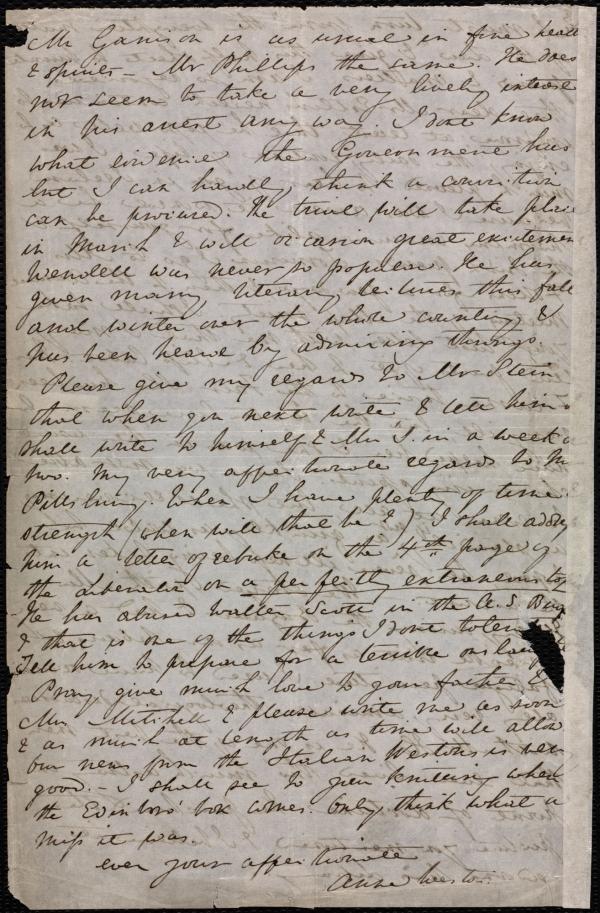 Mr Garrison is as usual in fine heal
& spirits – Mr Phillips the same. He does
not seem to take a very lively interes
in his arrest any way. I dont know
what evidence the Government has
but I can hardly think a conviction
can be procured. The trial will take place
in March & will occasion great excitemen
Wendell was never so popular. He has
given many literary lectures this fall
and winter over the whole country &
has been heard by admiring throngs.
Please give my regards to Mr Stein
that when you next write & tell him
shall write to himself & Mrs S. in a week o
two. My very affectionate regards to Mr
Pillsbury. When I have plenty of time
strength (when will that be?) I shall addres
him a letter of rebuke on the 4th page of
the Liberator on a perfectly extraneous top
He has abused Walter Scott in the A. S. Bug
& that is one of the things I dont toler
Tell him to prepare for a terrible onslaug
Pray give much love to your father &
Mrs Mitchell & please write me as soon
& as much at length as time will allow
Our news from the Italian Westons is ver
good. – I shall see to your knitting when
the Edinboro' box comes. Only think what a
miss it was.
ever your affectionate
Anne Weston.